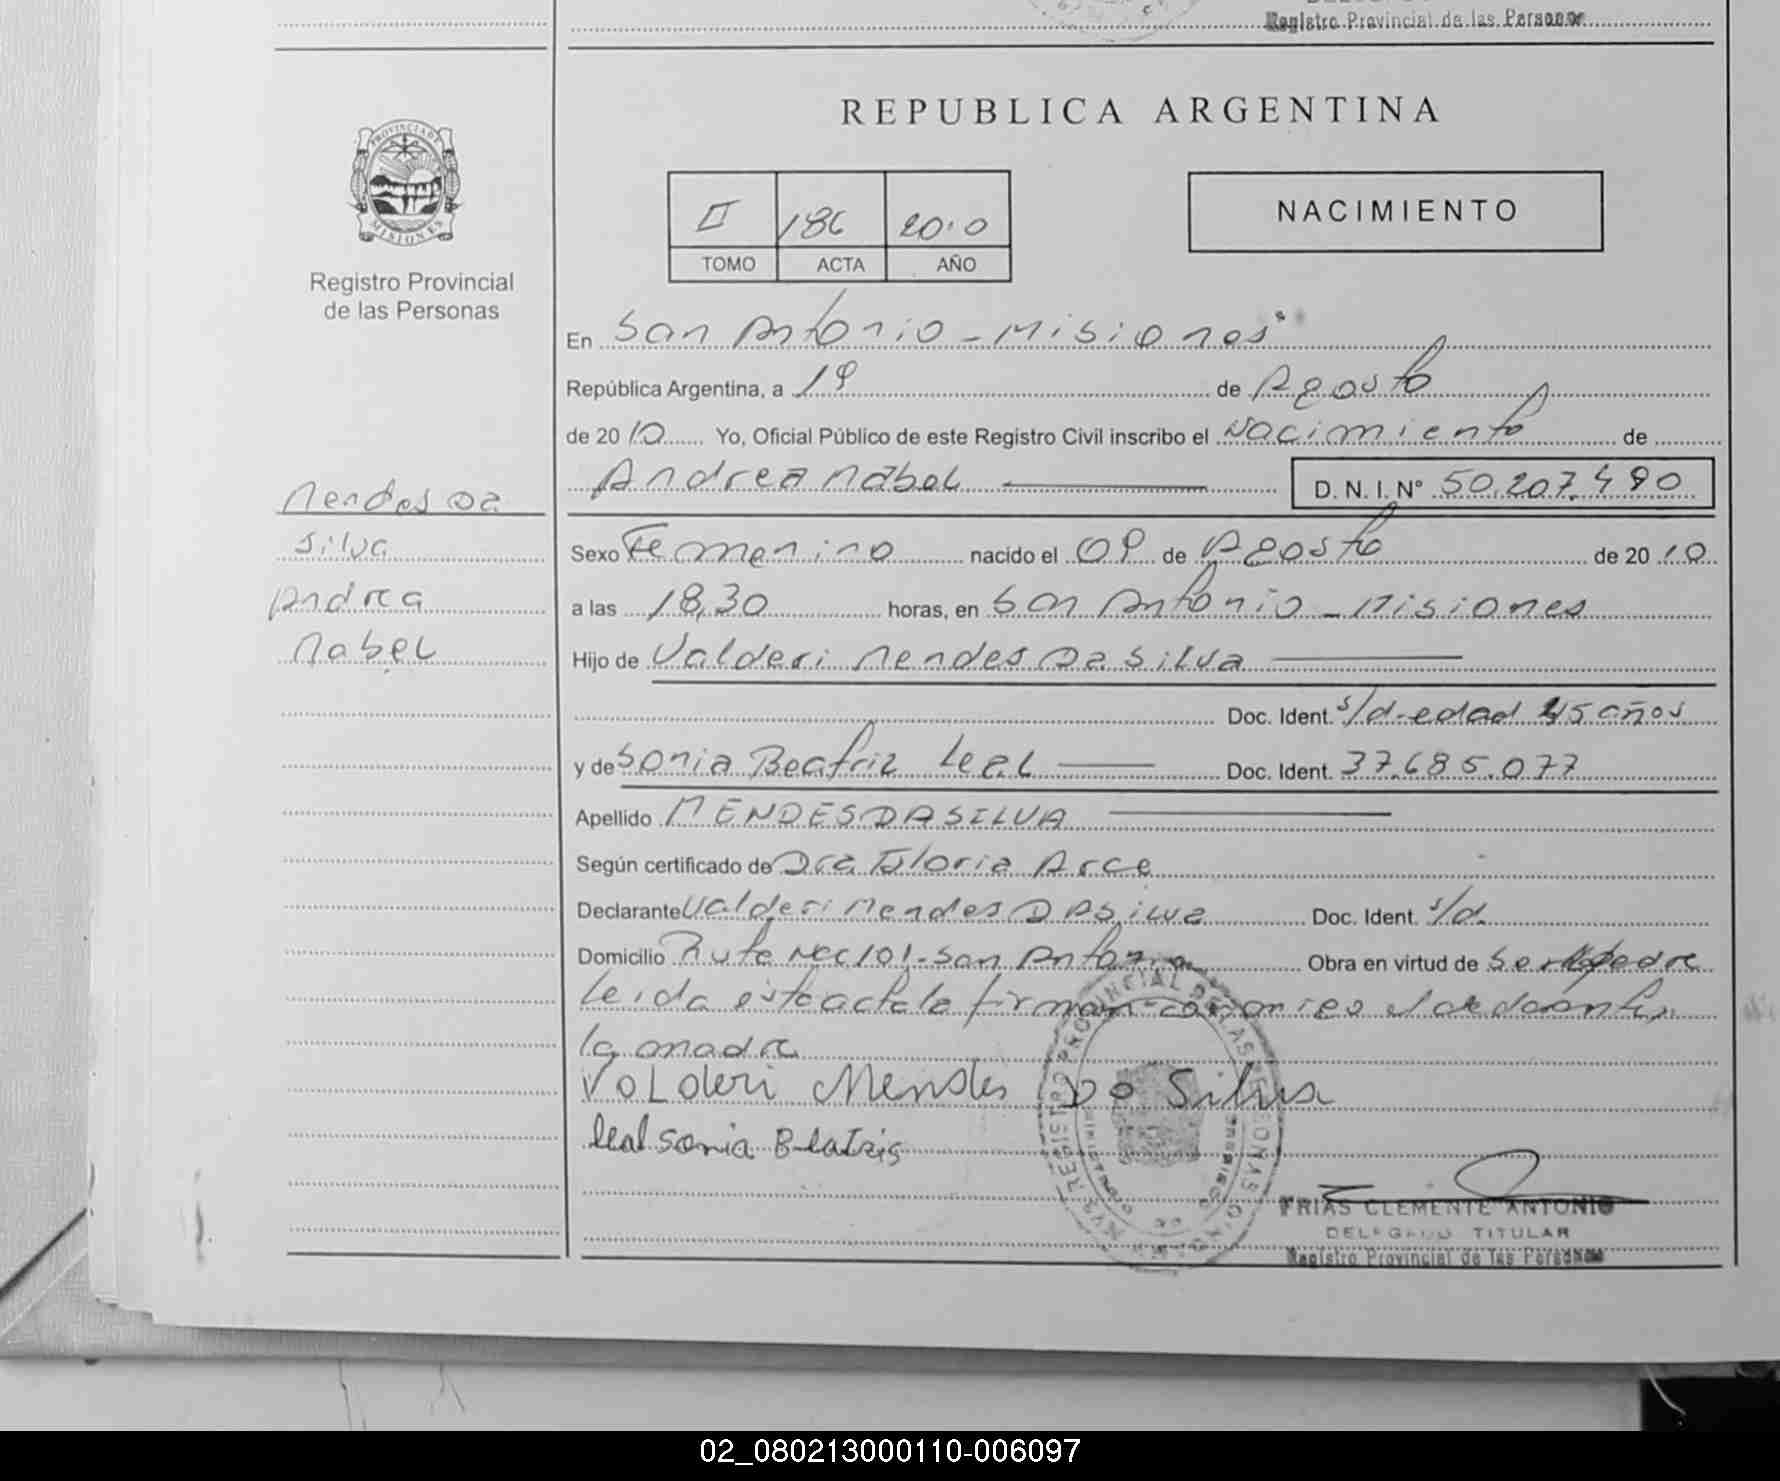 Registro Provincial de las Personas
REPUBLICA ARGENTINA
PROVINCIA DE
MISIONES
Registro Provincial
de las Personas
II 186 2010
TOMO ACTA AÑO
NACIMIENTO
En San Antonio - Misiones
República Argentina, a 19 de Agosto
de 2010 Yo, Oficial Público de este Registro Civil inscribo el Nacimiento de
Andrea Mabel D. N. I. N° 50.207.490
Mendes Da
Silva
Andrea
Mabel
Sexo Femenino nacido el 09 de Agosto de 2010
a las 18,30 horas, en San Antonio - Misiones
Hijo de Valderi Mendes Da Silva
Doc. Ident. s/d - edad 45 años
y de Sonia Beatriz Leal Doc. Ident. 37.685.077
Apellido MENDES DA SILVA
Según certificado de Dra Gloria Arce
Declarante Valderi Mendes DA Silva Doc. Ident. s/d.
Domicilio Ruta Nac 101 - San Antonio Obra en virtud de Ser padre
Leida este acta la firman conmigo el declarante y
la madre
Valderi Mendes Da Silva
Leal Sonia Beatris
FRIAS CLEMENTE ANTONIO
DELEGADO TITULAR
Registro Provincial de las Personas
02_080213000110-006097